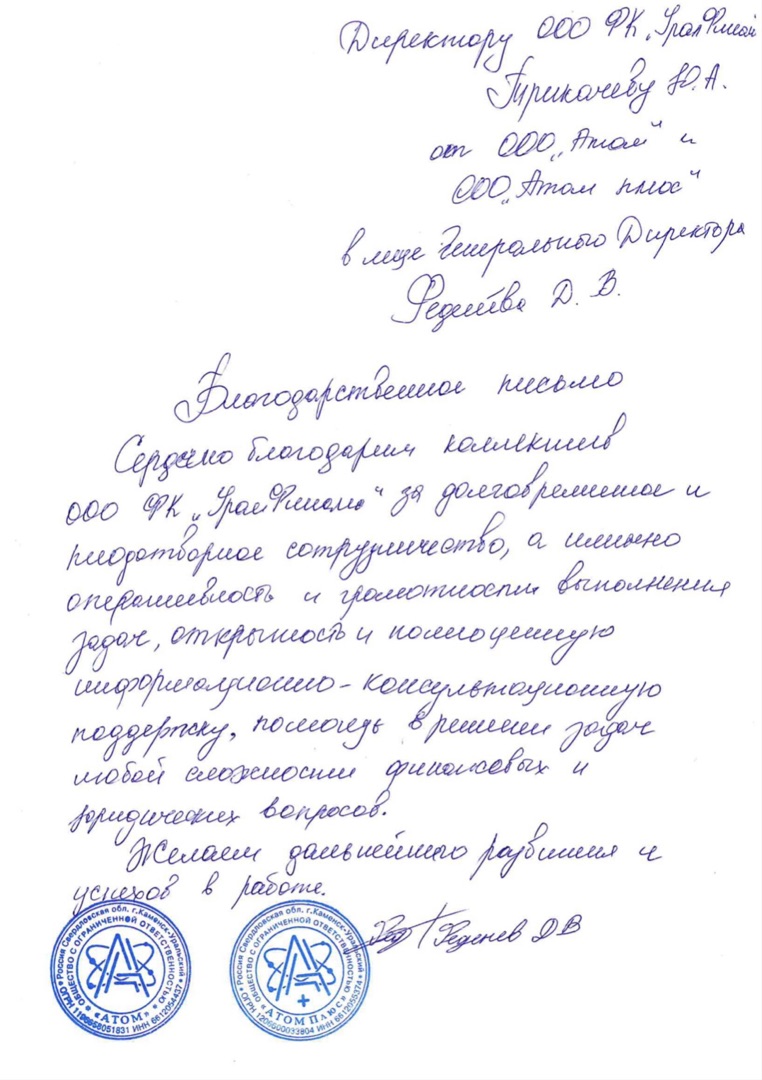 Директору ООО ФК „УралФинанс
Пирикачеву Ю.А.
от ООО „Атом" и
ООО „Атом плюс"
в лице Генерального Директора
Феденёва Д. В.
Благодарственное письмо
Сердечно благодарим коллектив
ООО ФК „УралФинанс" за долговременное и
плодотворное сотрудничество, а именно
оперативность и грамотности выполнения
задач, открытость и полноценную
информационно-консультационную
поддержку, помощь в решении задач
любой сложности финансовых и
юридических вопросов.
Желаем дальнейшего развития и
успехов в работе.
Феденев ДВ
Россия Свердловская обл. г.Каменск-Уральский
ОБЩЕСТВО С ОГРАНИЧЕННОЙ ОТВЕТСТВЕННОСТЬЮ
«АТОМ»
ИНН 6612054437
Россия Свердловская обл. г.Каменск-Уральский
ОБЩЕСТВО С ОГРАНИЧЕННОЙ ОТВЕТСТВЕННОСТЬЮ
«АТОМ Плюс»
ОГРН 1206600093804 ИНН 6612055374